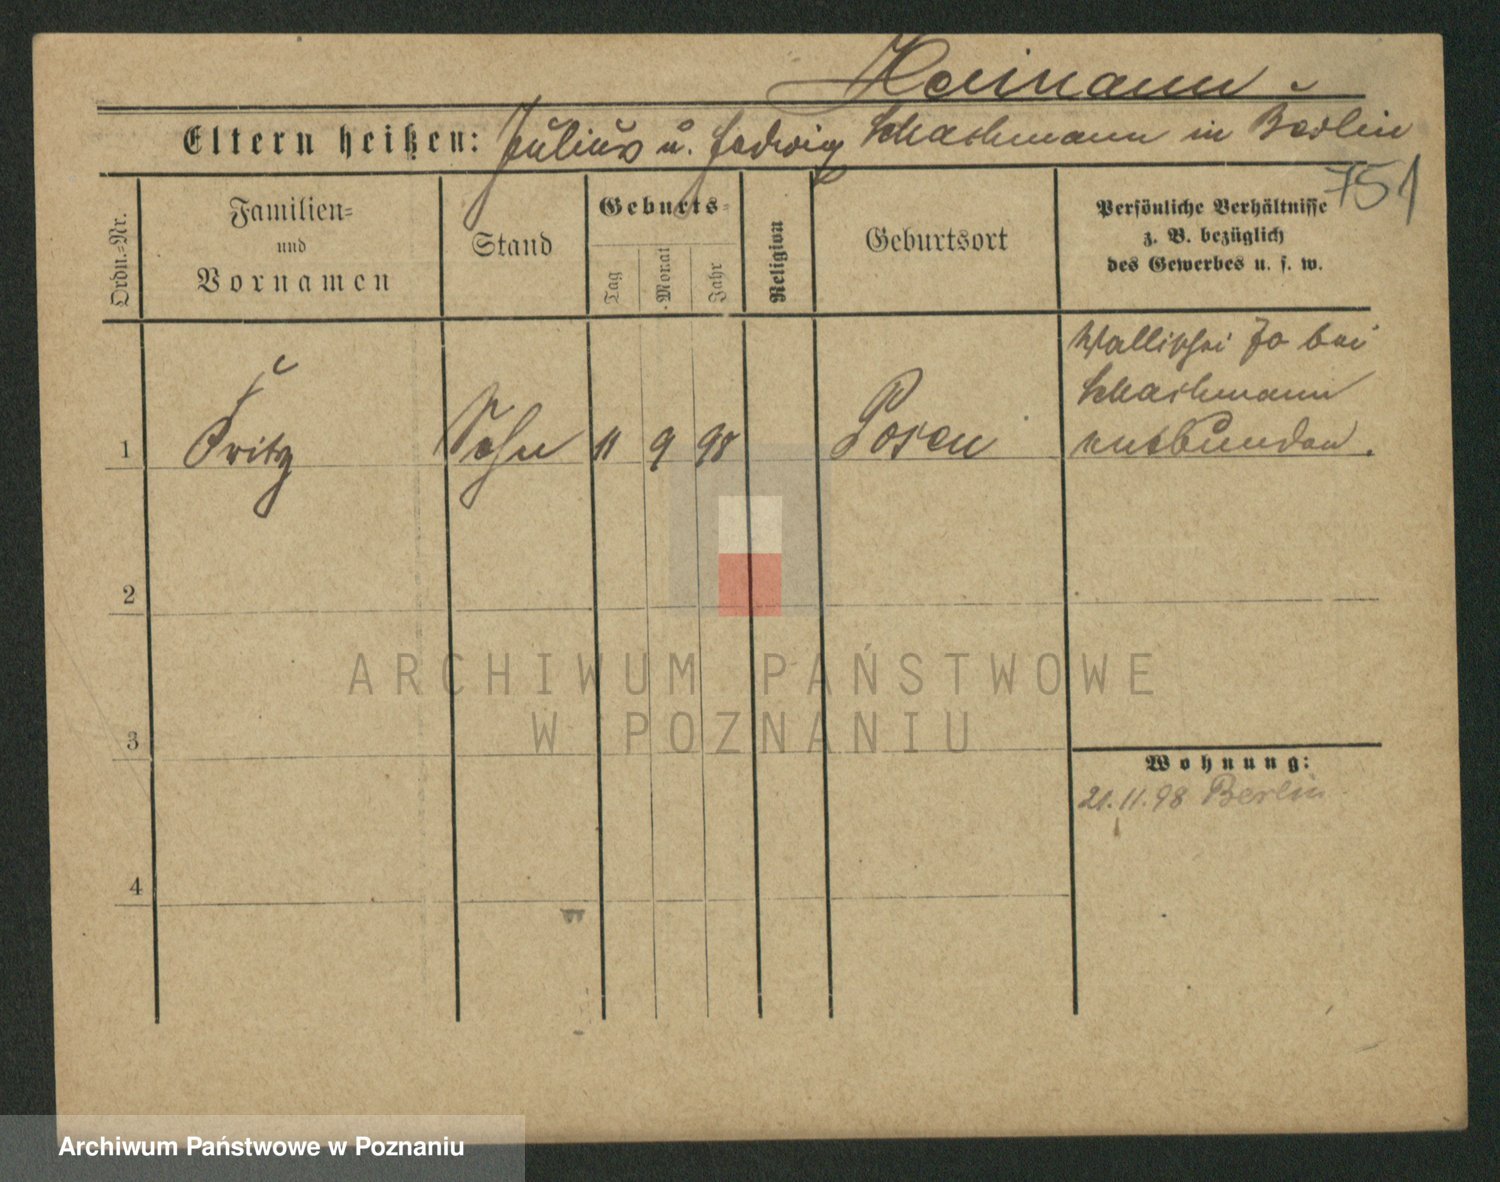 Heimann
Eltern heißen: Julius u. Hedwig Schachmann in Berlin
751
Ordn.-Nr.
Familien- und Vornamen
Stand
Geburts-
Tag
Monat
Jahr
Religion
Geburtsort
Persönliche Verhältnisse
z. B. bezüglich
des Gewerbes u. s. w.
Wallischei 70 bei
Schachmann
entbunden.
1 Fritz Sohn 11 9 98 Posen
2
3
4
Wohnung:
21.11.98 Berlin
ARCHIWUM PAŃSTWOWE
W POZNANIU
Archiwum Państwowe w Poznaniu